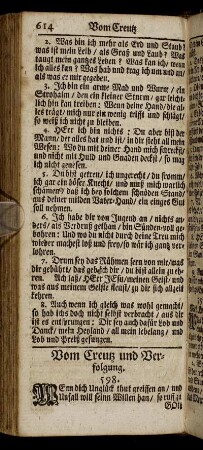 614 Vom Creutz
2. Was bin ich mehr als Erd und Staub?
was ist mein Leib / als Graß und Laub? Was
taugt mein gantzes Leben? Was kan ich / wenn
ich alles kan? Was hab und trag ich um und an/
als was er mir gegeben.
3. Jch bin ein arme Mad und Wurm / ein
Strohalm / den ein kleiner Sturm / gar leicht-
lich hin kan treiben: Wenn deine Hand / die al-
les trägt / nur mich ein wenig trifft und schlägt/
so weiß ich nicht zu bleiben.
4. HErr ich bin nichts: Du aber bist der
Mann / der alles hat und ist / in dir steht all mein
Wesen: Wo du mit deiner Hand mich schreckst/
und nicht mit Huld und Gnaden deckst / so mag
ich nicht genesen.
5. Du bist getreu / ich ungerecht / du fromm/
ich gar ein böser Knecht / und muß mich warlich
schämen / daß ich bey solchem schnöden Stand/
aus deiner milden Vater-Hand / ein einges Gut
soll nehmen.
6. Jch habe dir von Jugend an / nichts an-
ders / als Verdruß gethan / bin Sünden-voll ge-
bohren: Und wo du nicht durch deine Treu mich
wieder machest loß und frey / so wär ich gantz ver-
lohren.
7. Drum sey das Rühmen fern von mir / was
dir gebührt / das geb ich dir / du bist allein zu eh-
ren. Ach laß / HErr JEsu / meinen Geist / und
was aus meinem Geiste fleust / zu dir sich allzeit
kehren.
8. Auch wenn ich gleich was wohl gemacht/
so hab ichs doch nicht selbst verbracht / aus dir
ist es entsprungen: Dir sey auch dafür Lob und
Danck / mein Heyland / all mein lebelang / und
Lob und Preiß gesungen.
Vom Creutz und Ver-
folgung.
598.
WEnn dich Unglück thut greiffen an / und
Unfall will seinn Willen han / so ruff zu
GOtt